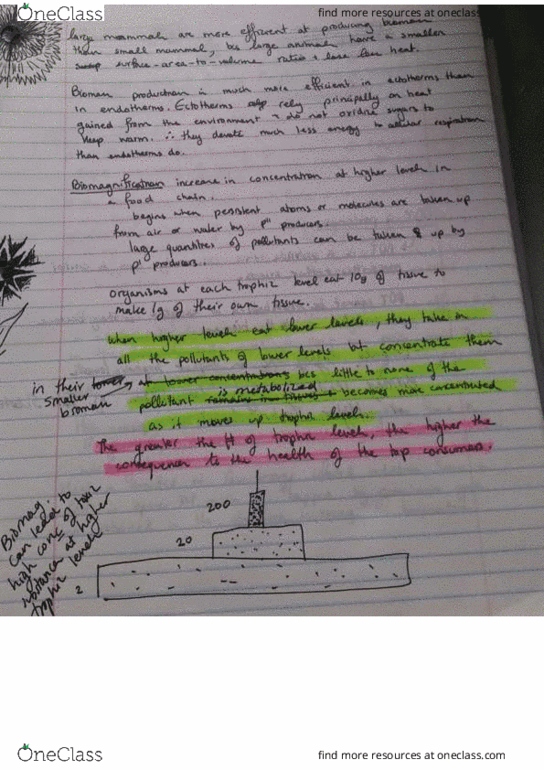 OneClass
find more resources at oneclass.
large mammals are more efficient at producing biomass
than small mammal, bc large animals have a smaller
surface-area-to-volume ratio & lose less heat.
Biomass production is much more efficient in ectotherms than
in endotherms. Ectotherms rely principally on heat
gained from the environment & do not oxidize sugars to
keep warm. ∴ they devote much less energy to cellular respiration
than endotherms do.
Biomagnification increase in concentration at higher levels in
a food chain.
begins when persistent atoms or molecules are taken up
from air or water by p'' producers.
large quantities of pollutants can be taken up by
p' producers.
organisms at each trophic level eat 10g of tissue to
make 1g of their own tissue.
when higher levels eat lower levels, they take in
all the pollutants of lower levels but concentrate them
in their lower, at lower concentrations bcs little to none of the
smaller biomass
is metabolized
pollutant remains in tissues & becomes more concentrated
as it moves up trophic levels.
The greater the # of trophic levels, the higher the
consequences to the health of the top consumers.
200
20
2
Biomag.
can lead to
high conc of toxic
substance at higher
trophic levels
OneClass
find more resources at oneclass.com